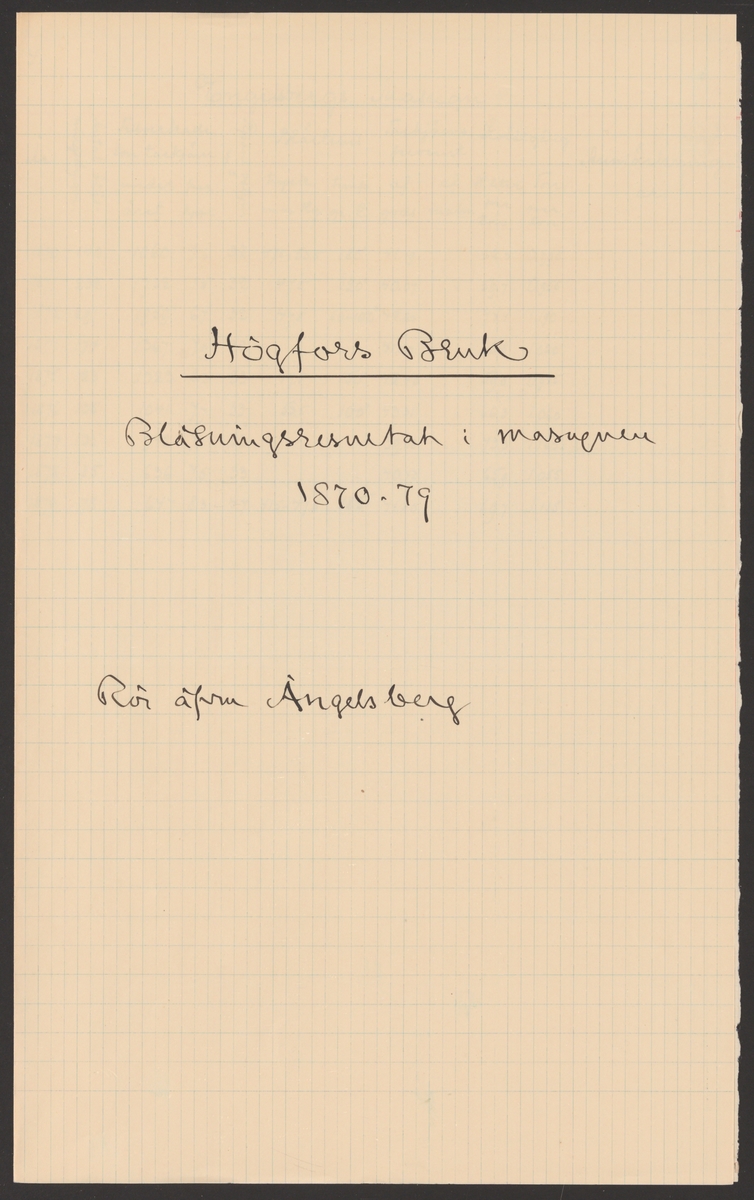 Högfors Bruk
Blåsningsresultat i masugnen
1870-79
Rör äfven Ängelsberg